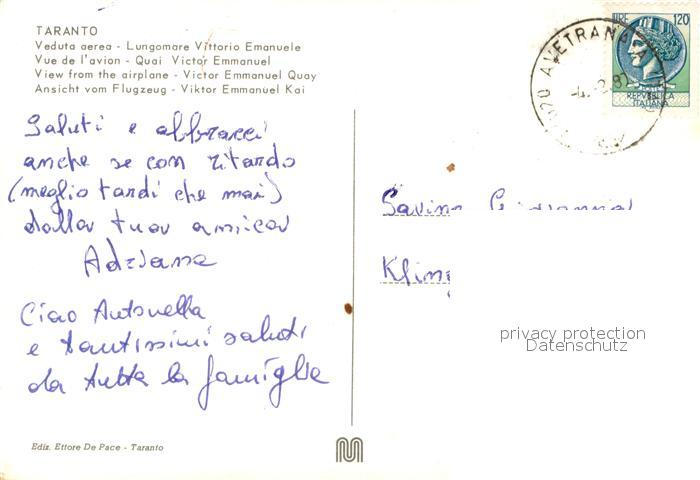 TARANTO
Veduta aerea - Lungomare Vittorio Emanuele
Vue de l'avion - Quai Victor Emmanuel
View from the airplane - Victor Emmanuel Quay
Ansicht vom Flugzeug - Viktor Emmanuel Kai
LIRE 120
AVETRANA
REPUBBLICA
ITALIANA
Saluti e abbracci
anche se con ritardo
(meglio tardi che mai)
dalla tua amica
Adriana
Ciao Antonella
e tantissimi saluti
da tutta la famiglia
Savino
Kling
privacy protection
Datenschutz
Ediz. Ettore De Pace - Taranto